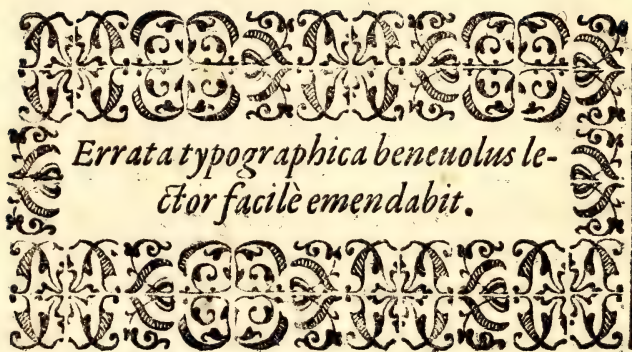 Errata typographica beneuolus le-
ctor facilè emendabit.